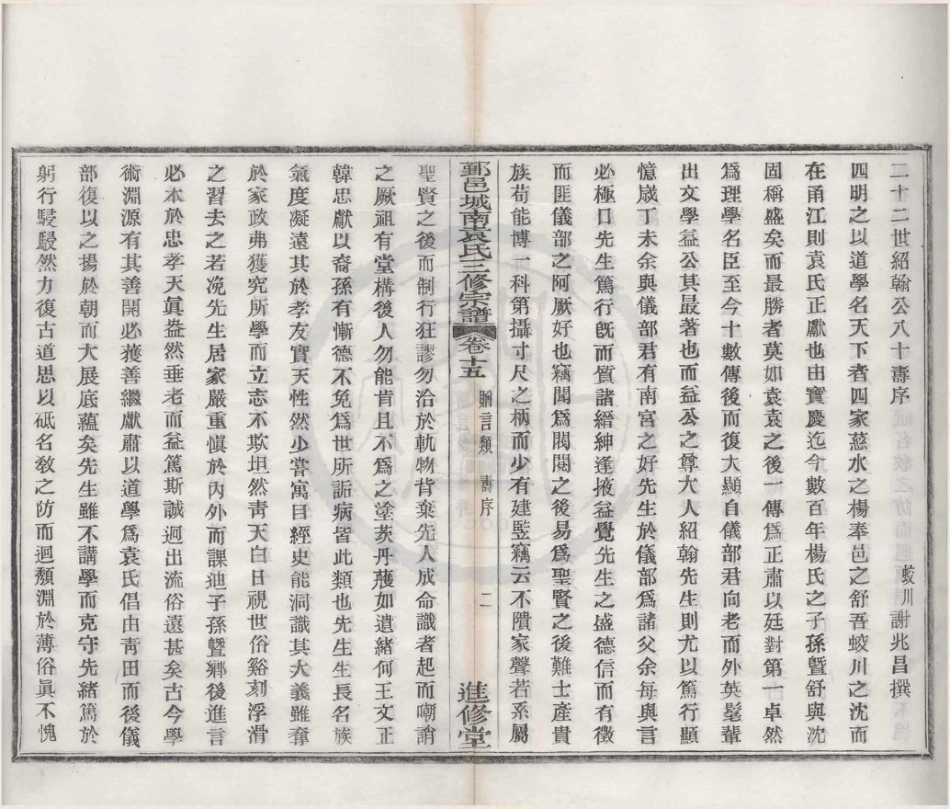 二十二世紹翰公八十壽序
蛟川謝兆昌撰
四明之以道學名天下者四家慈水之楊奉邑之舒吾蛟川之沈而
在甬江則袁氏正獻也由寶慶迄今數百年楊氏之子孫暨舒與沈
固稱盛矣而最勝者莫如袁袁之後一傳爲正肅以廷對第一卓然
爲理學名臣至今十數傳後而復大顯自儀部君向老而外英髦輩
出文學益公其最著也而益公之尊大人紹翰先生則尤以篤行顯
憶歲丁未余與儀部君有南宮之好先生於儀部爲諸父余每與言
必極口先生篤行旣而質諸縉紳逢掖益覺先生之盛德信而有徵
而匪儀部之阿厥好也竊聞爲閥閱之後易爲聖賢之後難士產貴
族苟能博一科第攝寸尺之柄而少有建竪竊云不隤家聲若系屬
鄞邑城南袁氏三修宗譜 卷十五 贈言類 壽序 二 進修堂
聖賢之後而制行狂謬勿治於軌物背棄先人成命識者起而嘲誚
之厥祖有堂構後人勿能肯且不爲之塗茨丹雘如遺緒何王文正
韓忠獻以裔孫有慚德不免爲世所詬病皆此類也先生生長名族
氣度凝遠其於孝友實天性然少嘗寓目經史能洞識其大義雖奪
於家政弗獲究所學而立志不欺坦然靑天白日視世俗谿刻浮滑
之習去之若浼先生居家嚴重愼於內外而課迪子孫曁鄕後進言
必本於忠孝天眞盎然垂老而益篤斯誠迥出流俗遠甚矣古今學
術淵源有其善開必獲善繼獻肅以道學爲袁氏倡由靑田而後儀
部復以之揚於朝而大展底蘊矣先生雖不講學而克守先緒篤於
躬行駸駸然力復古道思以砥名敎之防而迴頽淵於薄俗眞不愧